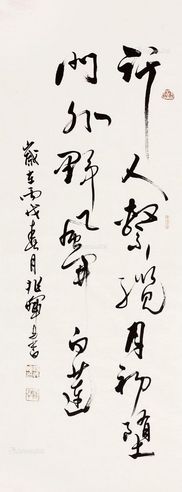 行人繫纜月初墮
門外野風開白蓮
歲在丙戌春月